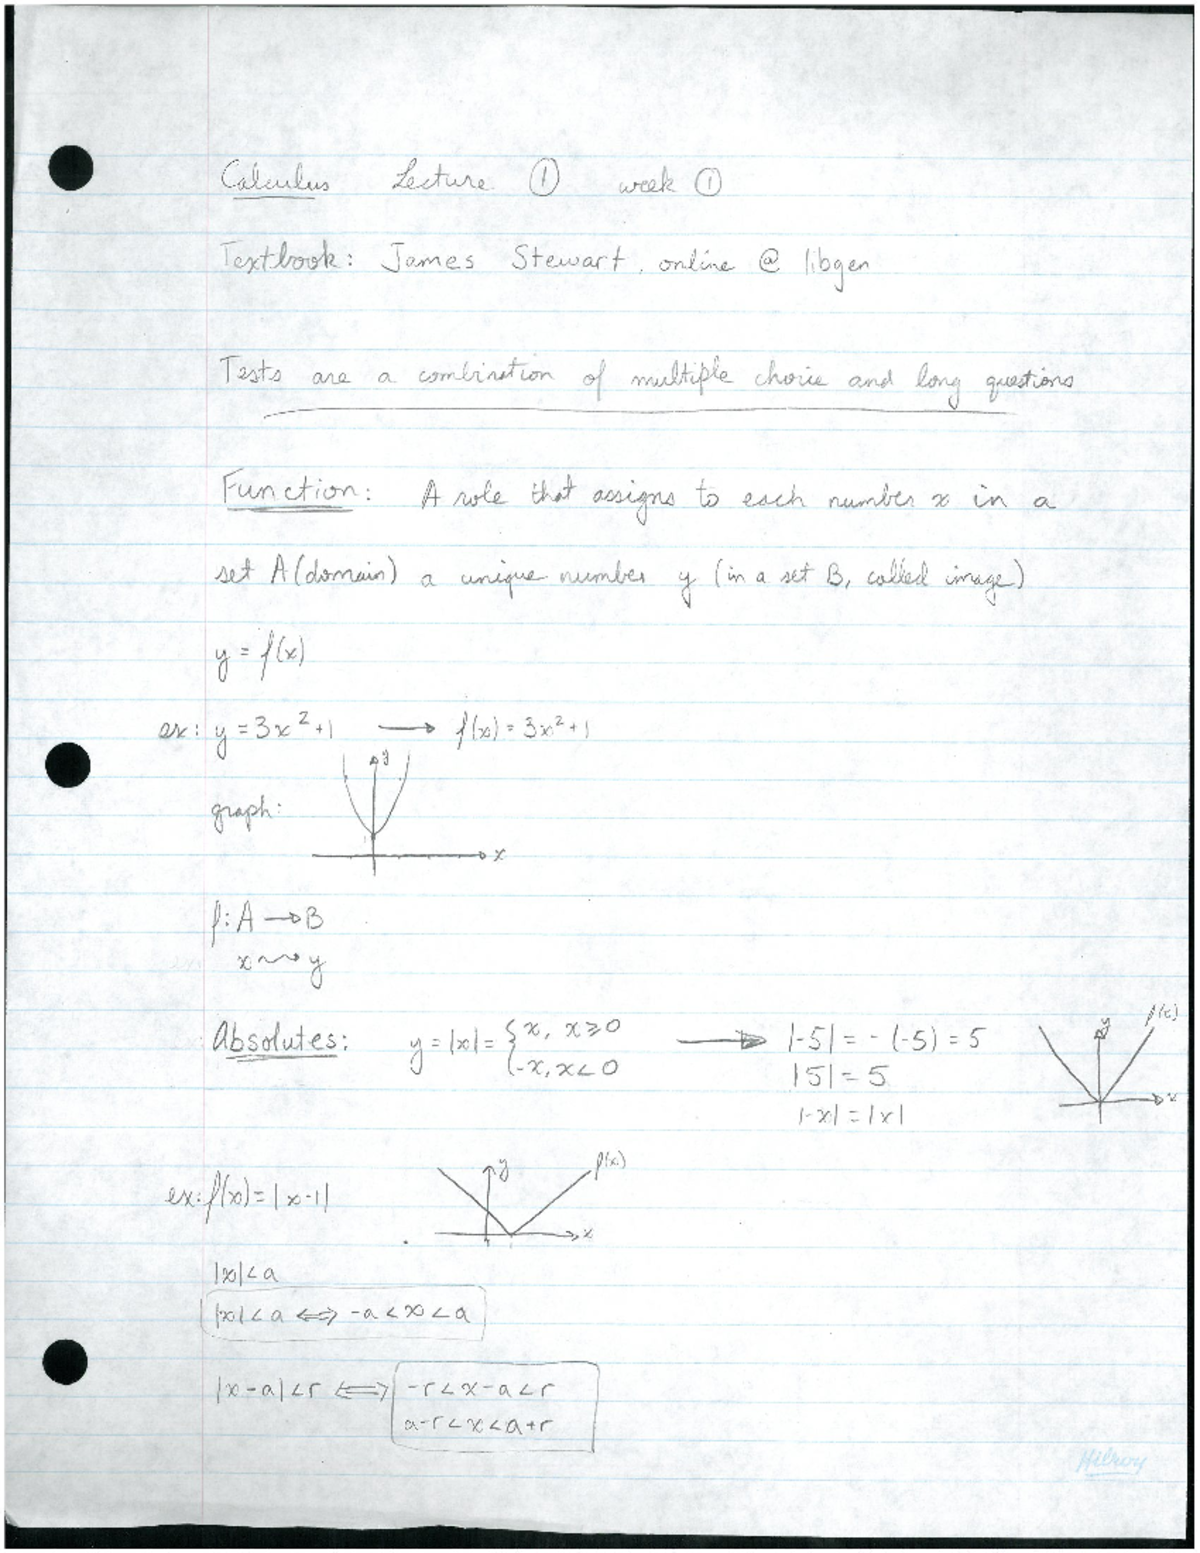 Calculus Lecture ① week ①
Textbook: James Stewart, online @ libgen
Tests are a combination of multiple choice and long questions
Function: A role that assigns to each number x in a
set A (domain) a unique number y (in a set B, called image)
y = f(x)
ex: y = 3x² + 1 → f(x) = 3x² + 1
y
graph:
x
f: A → B
x ⇝ y
Absolutes: y = |x| = { x, x ≥ 0 → |-5| = - (-5) = 5 y f(x)
-x, x < 0 |5| = 5 x
|-x| = |x|
ex: f(x) = |x-1| y f(x)
x
|x| < a
|x| < a ⟺ -a < x < a
|x-a| < r ⟺ -r < x-a < r
a-r < x < a+r
Hilroy